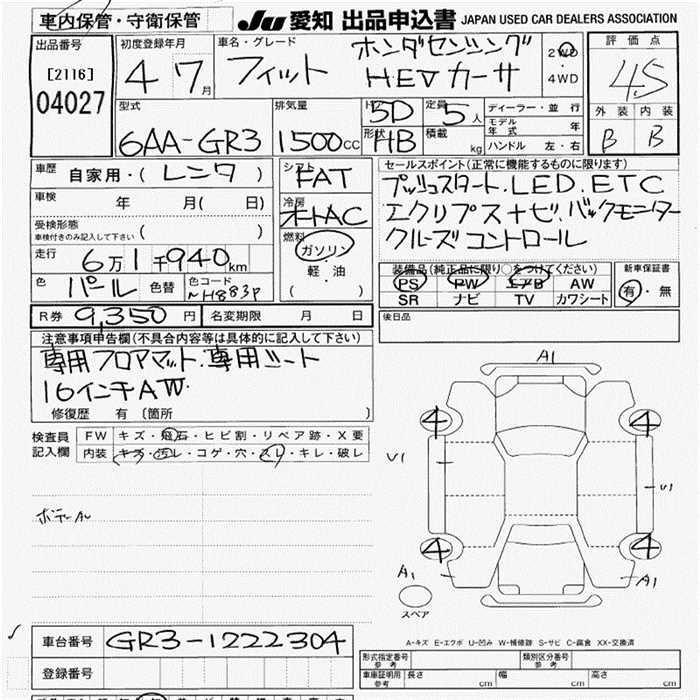 車内保管・守衛保管
JU 愛知 出品申込書 JAPAN USED CAR DEALERS ASSOCIATION
出品番号
[2116]
04027
初度登録年月
4年 7月
車名・グレード
ホンダセンシング
フィット HEV カーサ
2WD
・
4WD
評価点
4.5
外装 内装
B B
型式
6AA-GR3
排気量
1500cc
ドア 5D
形状 HB
定員 5人
積載 kg
ディーラー・並行
モデル年式 年
ハンドル 左・右
車歴
自家用・( レンタ )
車検 年 月( 日)
受検形態
車検付きのみ記入して下さい ( )
走行
6万1千940km
色 パール 色替
色コード
NH883P
シフト
FAT
冷房
オートAC
燃料
ガソリン
・
軽・油
( )
セールスポイント(正常に機能するものに限ります)
プッシュスタート.LED.ETC
エクリプスナビ.バックモニター
クルーズコントロール
装備品(純正品に限り○をつけてください)
PS PW エアB AW
SR ナビ TV カワシート
新車保証書
有・無
R券 9,350円 名変期限 月 日
後日品
注意事項申告欄(不具合内容等は具体的に記入して下さい)
専用フロアマット.専用シート
16インチAW.
修復歴 有 〔箇所 〕
検査員
記入欄
FW キズ・飛石・ヒビ割・リペア跡・X要
内装 キズ・汚レ・コゲ・穴・スレ・キレ・破レ
ボデーAU
A1
4 4
U1
U1
4 4
A1
A1
スペア
A-キズ E-エクボ U-凹み W-補修跡 S-サビ C-腐食 XX-交換済
車台番号 GR3-1222304
登録番号
形式指定番号
参考
類別区分番号
参考
車庫証明用
参考
長さ cm 幅 cm 高さ cm